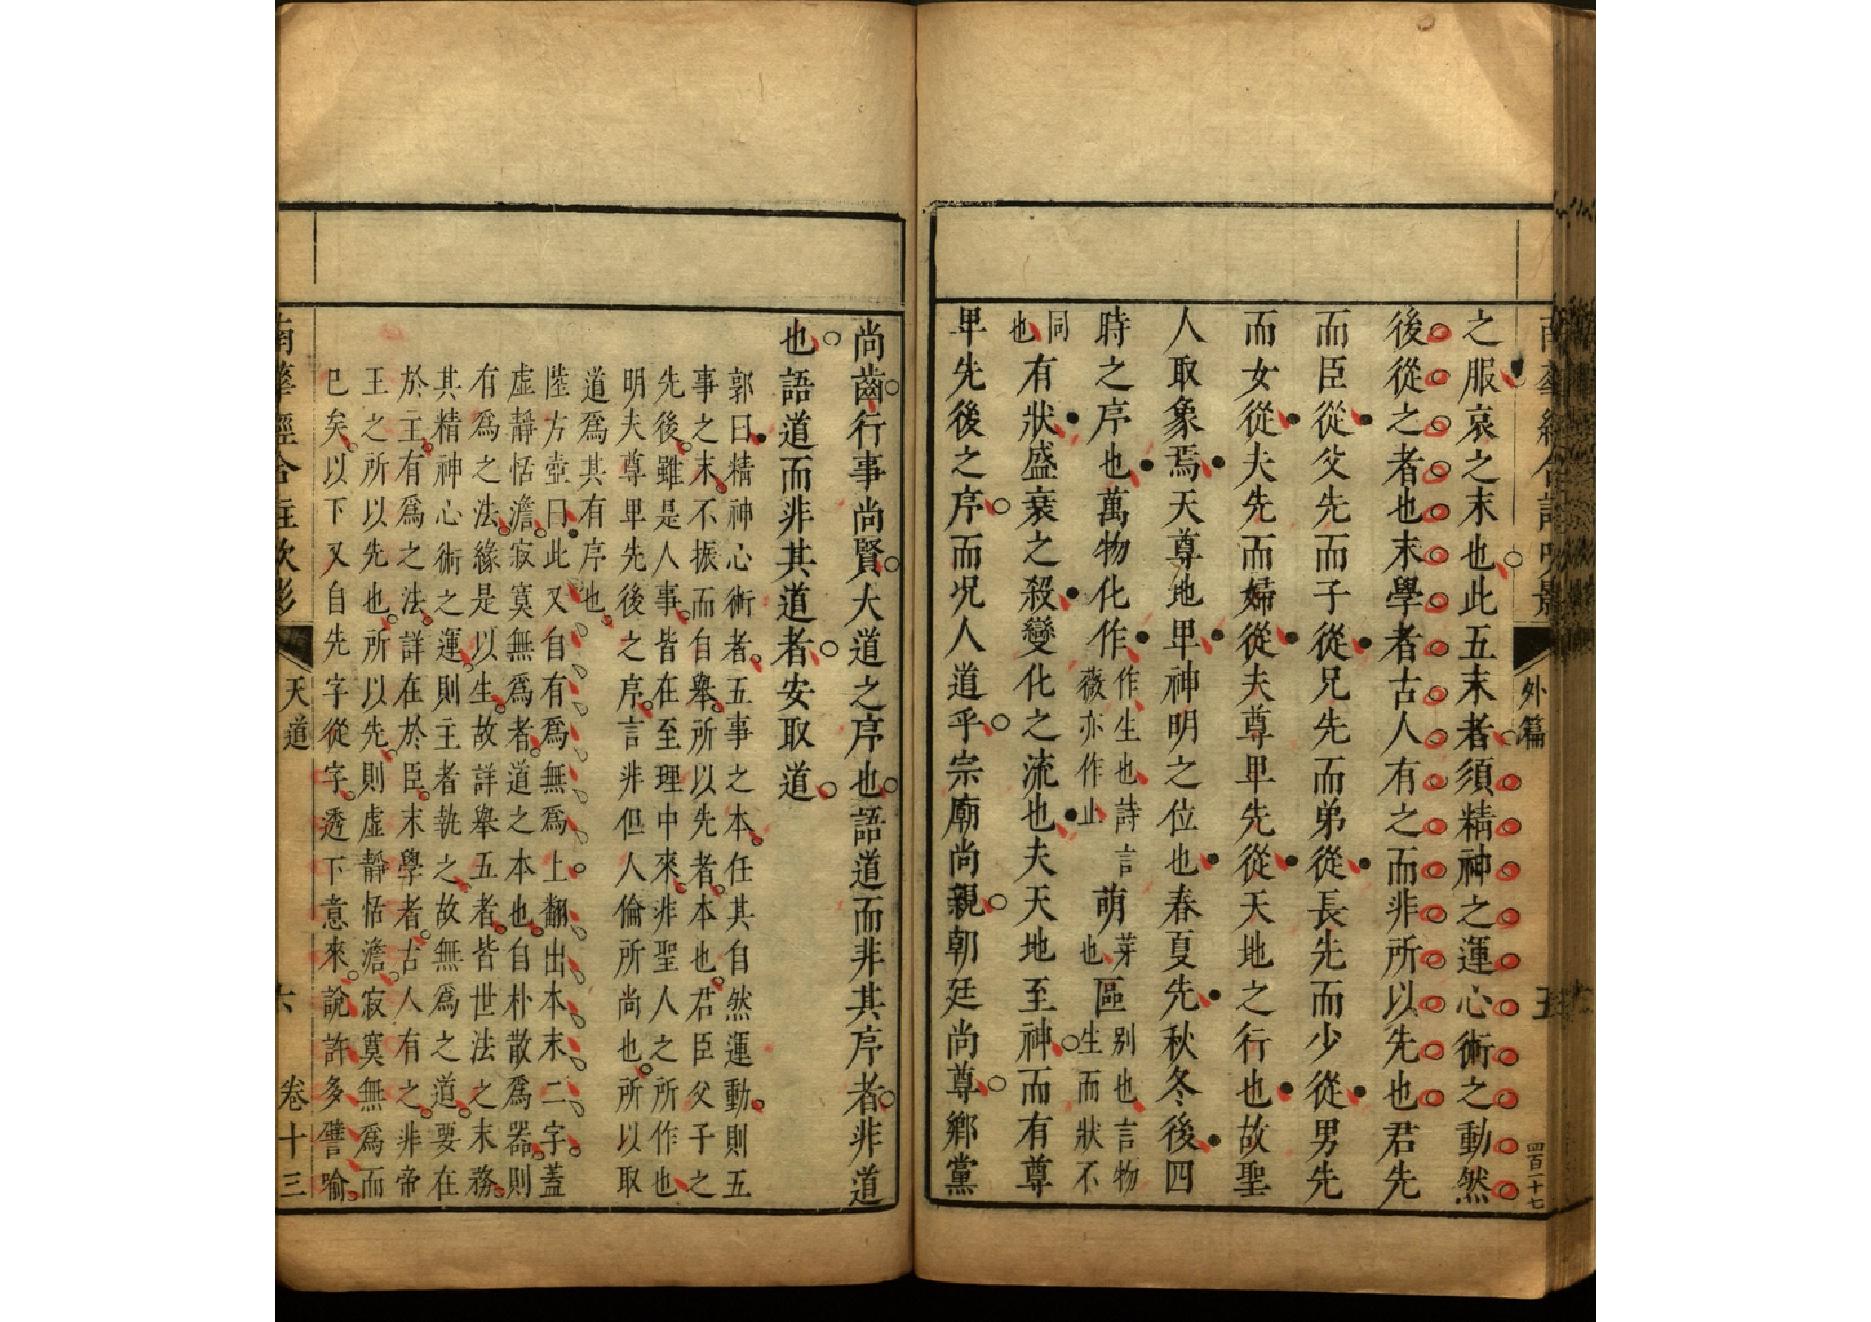 南華經合註吹影 外篇 五
之服哀之末也此五末者須精神之運心術之動然
後從之者也末學者古人有之而非所以先也君先
而臣從父先而子從兄先而弟從長先而少從男先
而女從夫先而婦從夫尊卑先從天地之行也故聖
人取象焉天尊地卑神明之位也春夏先秋冬後四
時之序也萬物化作作生也詩言薇亦作止萌芽也區别也言物生而狀不
同也有狀盛衰之殺變化之流也夫天地至神而有尊
卑先後之序而况人道乎宗廟尚親朝廷尚尊鄉黨
尚齒行事尚賢大道之序也語道而非其序者非道
也語道而非其道者安取道
郭曰精神心術者五事之本任其自然運動則五
事之末不振而自舉所以先者本也君臣父子之
先後雖是人事皆在至理中來非聖人之所作也
明夫尊卑先後之序言非但人倫所尚也所以取
道爲其有序也
陸方壺曰此又自有爲無爲上翻出本末二字蓋
虛靜恬澹寂寞無爲者道之本也自朴散爲器則
有爲之法緣是以生故詳舉五者皆世法之末務
其精神心術之運則主者執之故無爲之道要在
於主有爲之法詳在於臣末學者古人有之非帝
王之所以先也所以先則虛靜恬澹寂寞無爲而
已矣以下又自先字從字透下意來說許多譬喻
南華經合註吹影 天道 六 卷十三